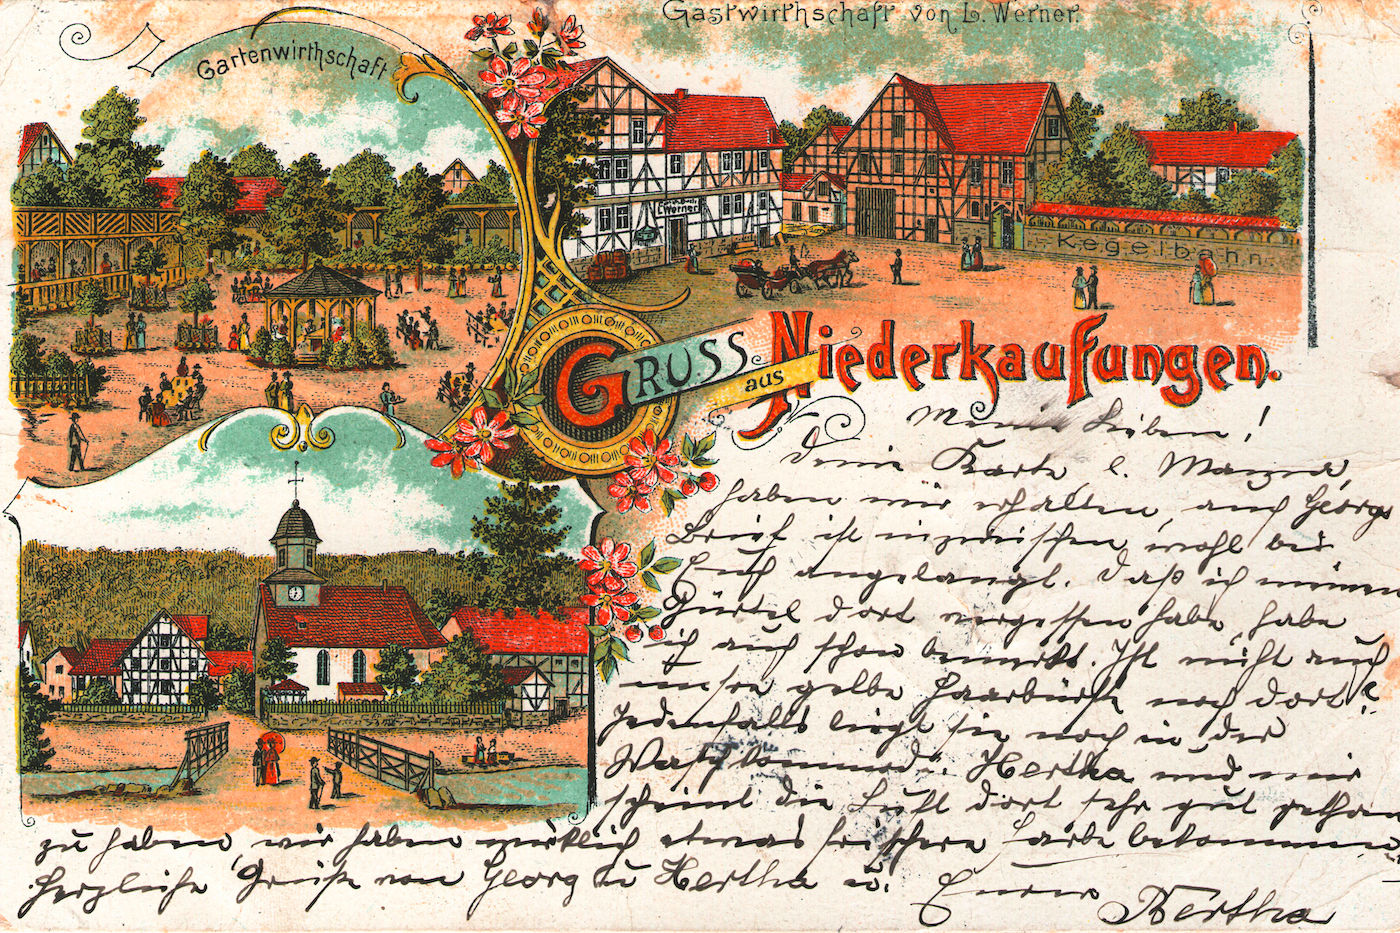 Gartenwirthschaft
Gastwirthschaft von L. Werner.
L. Werner
Kegelbahn
GRUSS
aus
Niederkaufungen.
Meine Lieben!
Deine Karte, l. Mama,
haben wir erhalten, auch Georgs
Brief ist inzwischen wohl bei
Euch angelangt. Daß ich meinen
Gürtel dort vergessen habe habe
ich auch schon bemerkt. Ist nicht auch
unsre gelbe Haarbürste noch dort?
Jedenfalls liegt sie noch in der
Waschkommode. Hertha und mir
scheint die Luft dort sehr gut gethan
zu haben wir haben wirklich etwas frischere Farbe bekommen.
Herzliche Grüße von Georg u Hertha u. Eurer
Bertha